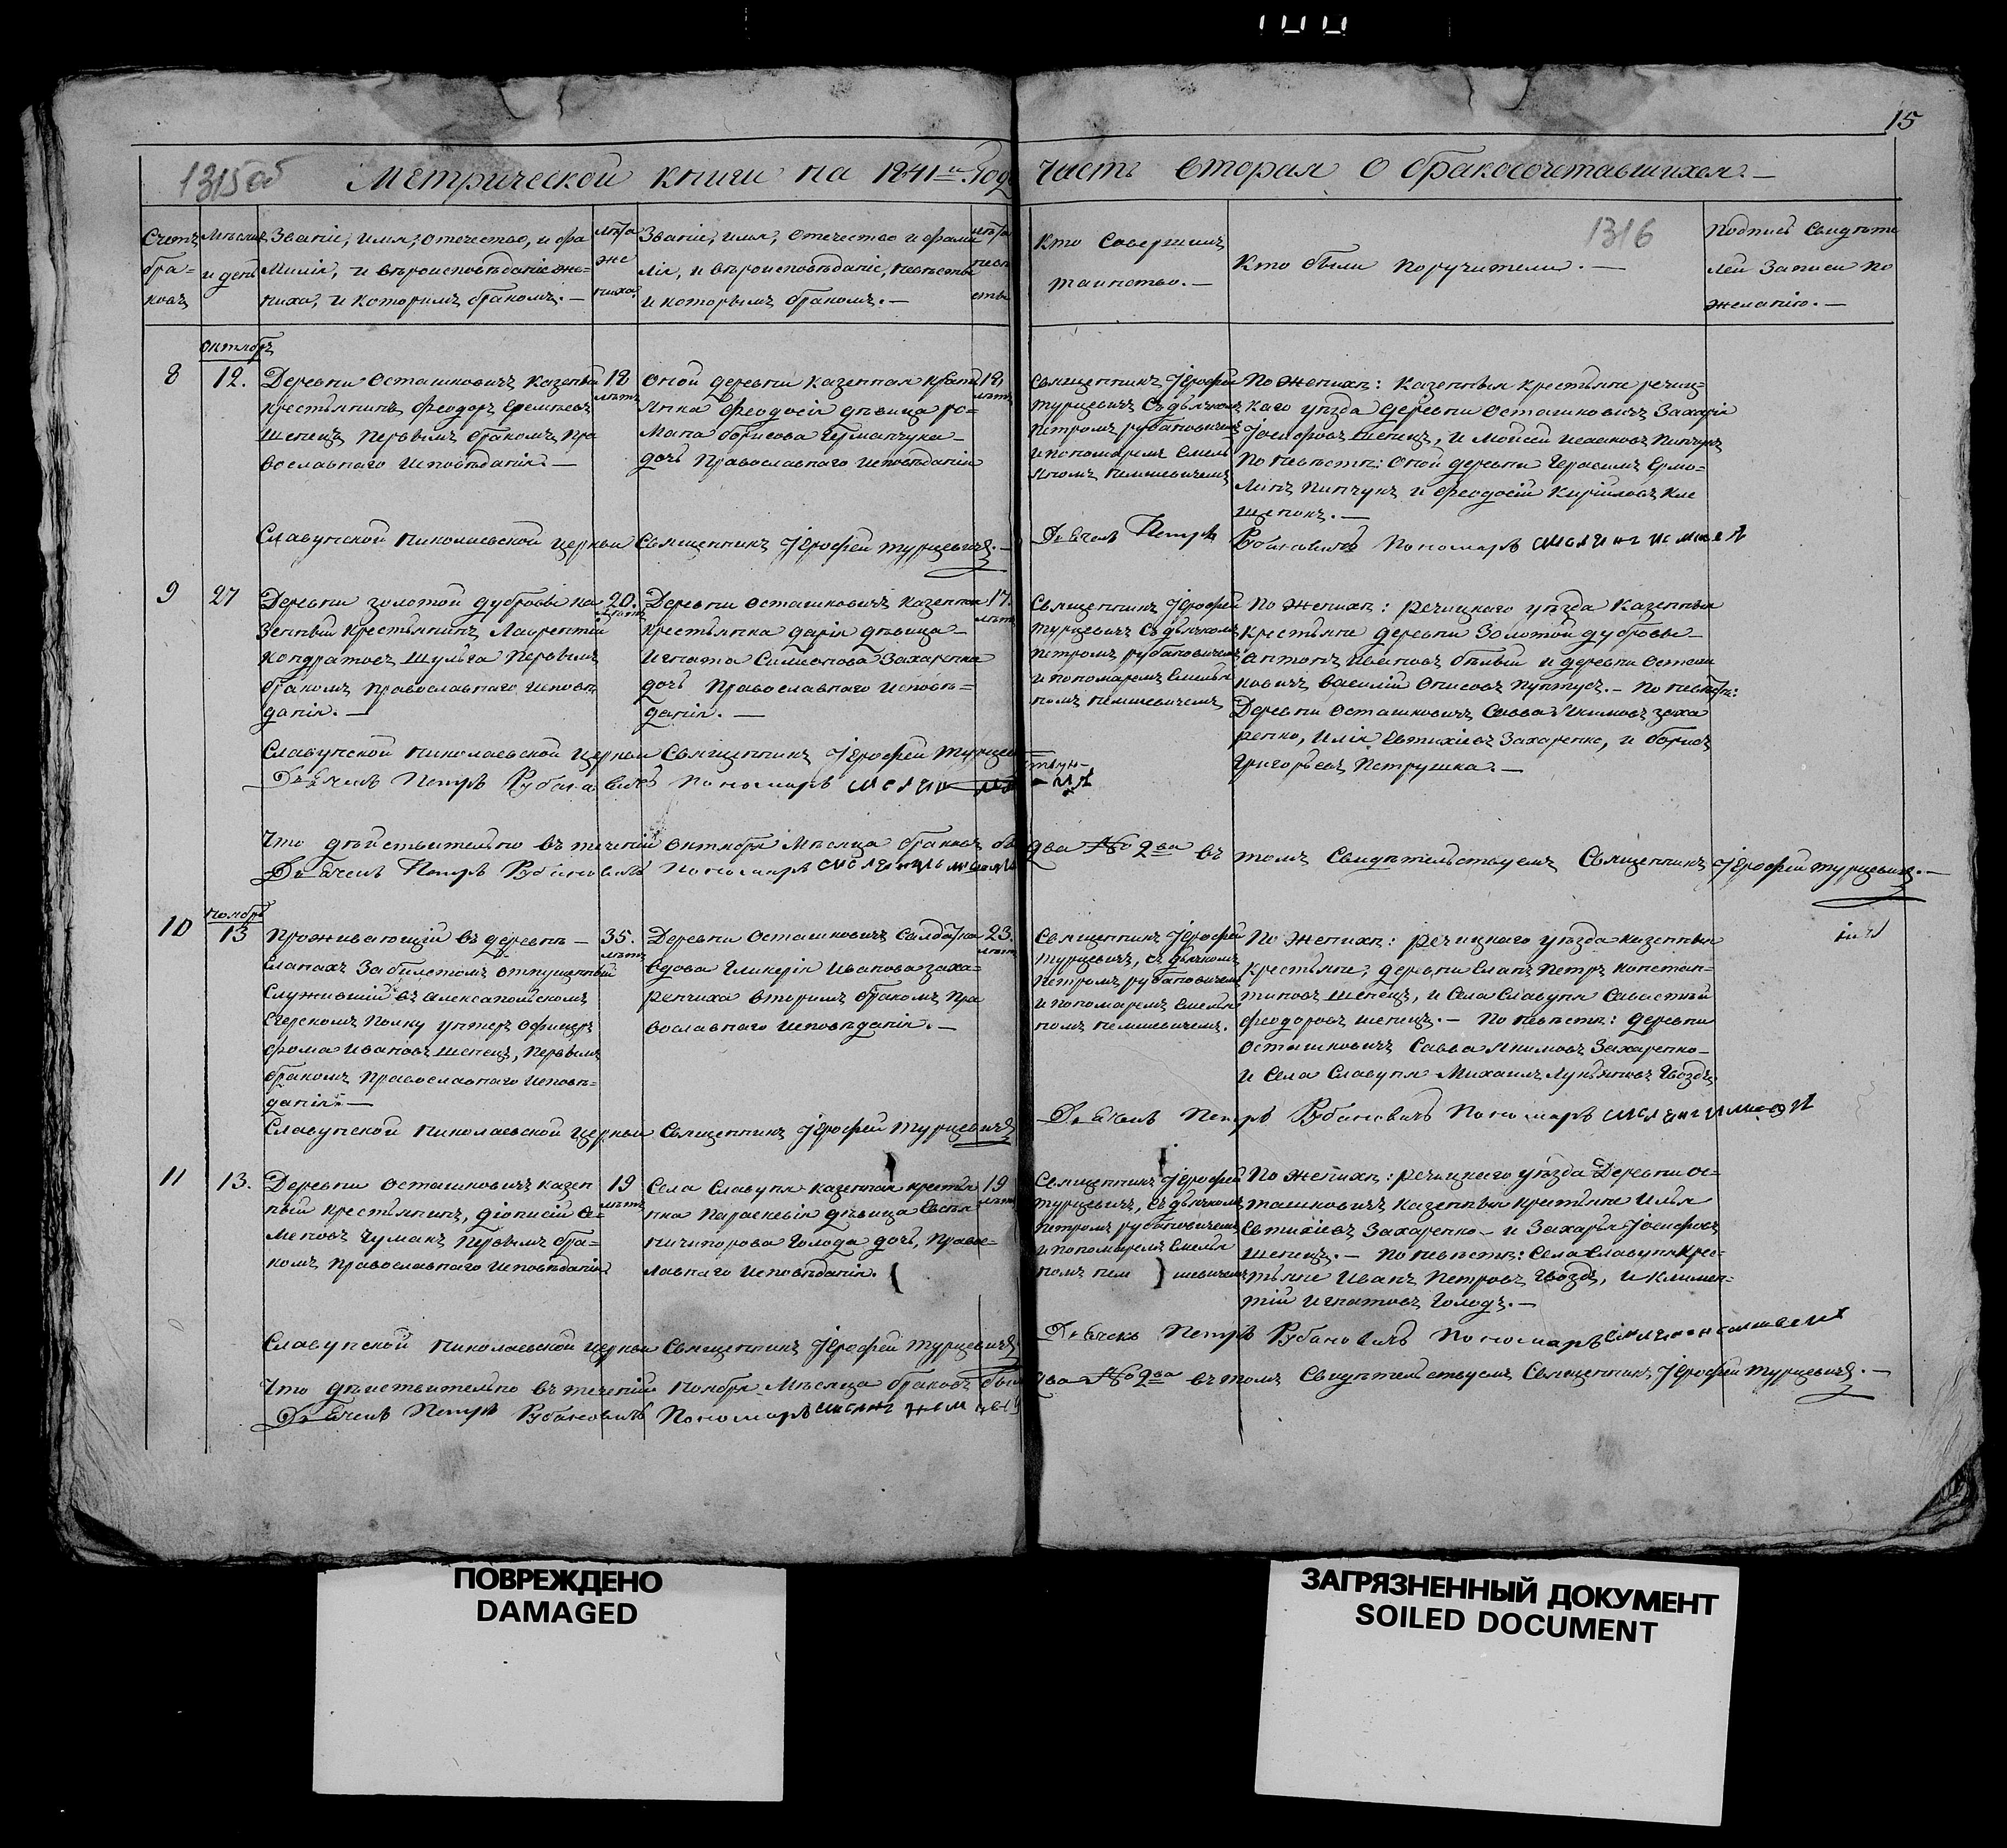 15
1315об
Метрической книги на 1841й Годъ часть вторая о бракосочетавшихся. —
Счетъ браковъ
Мѣсяцъ и день
Званіе, имя, отечество, и фамилія, и вѣроисповѣданіе жениха, и которымъ бракомъ. —
лѣта жениха
Званіе, имя, отечество и фамилія, и вѣроисповѣданіе, невѣсты и которымъ бракомъ. —
лѣта невѣсты
Кто совершилъ таинство. —
Кто были поручители. —
1316
Подпись свидѣтелей записи по желанію. —
Октябрь
8
12.
Деревни Осташковичъ казенный
крестьянинъ Феодоръ Еремѣевъ
Шепецъ первымъ бракомъ пра
вославнаго исповѣданія. —
18
лѣтъ
Оной деревни казенная кресть
янка Феодосія дѣвица Ро=
мана Борисова Гуманчука
дочь Православнаго исповѣданія
18
лѣтъ
Священникъ Іерофей
Турцевичъ съ дьячкомъ
Петромъ Рубановичемъ
и пономаремъ Емель
яномъ
По женихѣ: казенныя крестьяне речиц=
каго уѣзда деревни Осташковичъ Захарія
Іосифовъ Шепецъ, и Мойсей Исааковъ Пинчукъ
По невѣстѣ: оной деревни Герасимъ Ермо=
Пинчукъ и Феодосій Кириловъ Кле
щенокъ. —
Славунской Николаевской церкви Священникъ Іерофей Турцевичъ. —
Дьячекъ Петръ Рубановичъ Пономарь
9
27
Деревни Золотой дубровы ка
зенный крестьянинъ Лаврентій
Кондратовъ Шульга первымъ
бракомъ православнаго исповѣ
данія. —
20.
лѣтъ
Деревни Осташковичъ казенная
крестьянка Дарія дѣвица
Игната Симеонова Захаренка
дочь Православнаго исповѣ=
данія. —
17.
лѣтъ
Священникъ Іерофей
Турцевичъ съ дьячкомъ
Петромъ Рубановичемъ
и пономаремъ Емелья
номъ
По женихѣ: Речицкаго уѣзда казенныя
крестьяне деревни Золотой дубровы
Антонъ Ивановъ Бѣлый и деревни Осташ
ковичъ Василій Пунтусъ. — По невѣстѣ:
Деревни Осташковичъ Савва Якимовъ Заха
ренко, Илія Евтихіевъ Захаренко, и Борисъ
Григорьевъ Петрушка. —
Славунской Николаевской церкви Священникъ Іерофей
Дьячекъ Петръ Рубановичъ Пономарь
Что дѣйствительно въ теченіи октября мѣсяца браковъ два № 2ва въ томъ Свидѣтельствуемъ Священникъ Іерофей Турцевичъ. —
Дьячекъ Петръ Рубановичъ Пономарь
Ноябрь
10
13
Проживающій въ деревнѣ —
Еланахъ за билетомъ отпущенный
служившій въ Алексапольскомъ
Егерскомъ полку унтеръ офицеръ
Фома Ивановъ Шепецъ, первымъ
бракомъ православнаго исповѣ=
данія. —
35.
лѣтъ
Деревни Осташковичъ салдатка
вдова Гликерія Иванова Заха=
ренчиха вторымъ бракомъ пра
вославнаго исповѣданія. —
23.
лѣтъ
Священникъ Іерофей
Турцевичъ, съ дьячкомъ
Петромъ Рубановичемъ
и пономаремъ Емелья
номъ
По женихѣ: Речицкаго уѣзда казенныя
крестьяне, деревни Еланъ Петръ Констан=
тиновъ Шепецъ, и села Славуня
Феодоровъ Шепецъ. — По невѣстѣ: деревни
Осташковичъ Савва Якимовъ Захаренко —
и села Славуня Михаилъ Лукьяновъ Гвоздь
Славунской Николаевской церкви Священникъ Іерофей Турцевичъ
Дьячекъ Петръ Рубановичъ Пономарь
11
13.
Деревни Осташковичъ казен
ный крестьянинъ, Діонисій Се=
меновъ Чуманъ первымъ бра=
комъ православнаго исповѣданія
19
лѣтъ
Села Славуня казенная крестья
нка Параскевія дѣвица
Ничипорова Голода дочь, Правос=
лавнаго исповѣданія.
19
лѣтъ
Священникъ Іерофей
Турцевичъ, съ дьячкомъ
Петромъ Рубановичемъ
и пономаремъ Емелья
номъ
По женихѣ: Речицкаго уѣзда Деревни Ос=
ташковичъ казенныя крестьяне Илья
Евтихіевъ Захаренко — и Захарія Іосифовъ
Шепецъ. — По невѣстѣ: села Славуня крес=
тьяне Иванъ Петровъ Гвоздь, и Климен=
тій Игнатовъ Голодъ. —
Славунской Николаевской церкви Священникъ Іерофей Турцевичъ
Дьячекъ Петръ Рубановичъ Пономарь
Что дѣйствительно въ теченіи Ноября мѣсяца браковъ было два № 2ва въ томъ Свидѣтельствуемъ Священникъ Іерофей Турцевичъ. —
Дьячекъ Петръ Рубановичъ Пономарь
ПОВРЕЖДЕНО
DAMAGED
ЗАГРЯЗНЕННЫЙ ДОКУМЕНТ
SOILED DOCUMENT